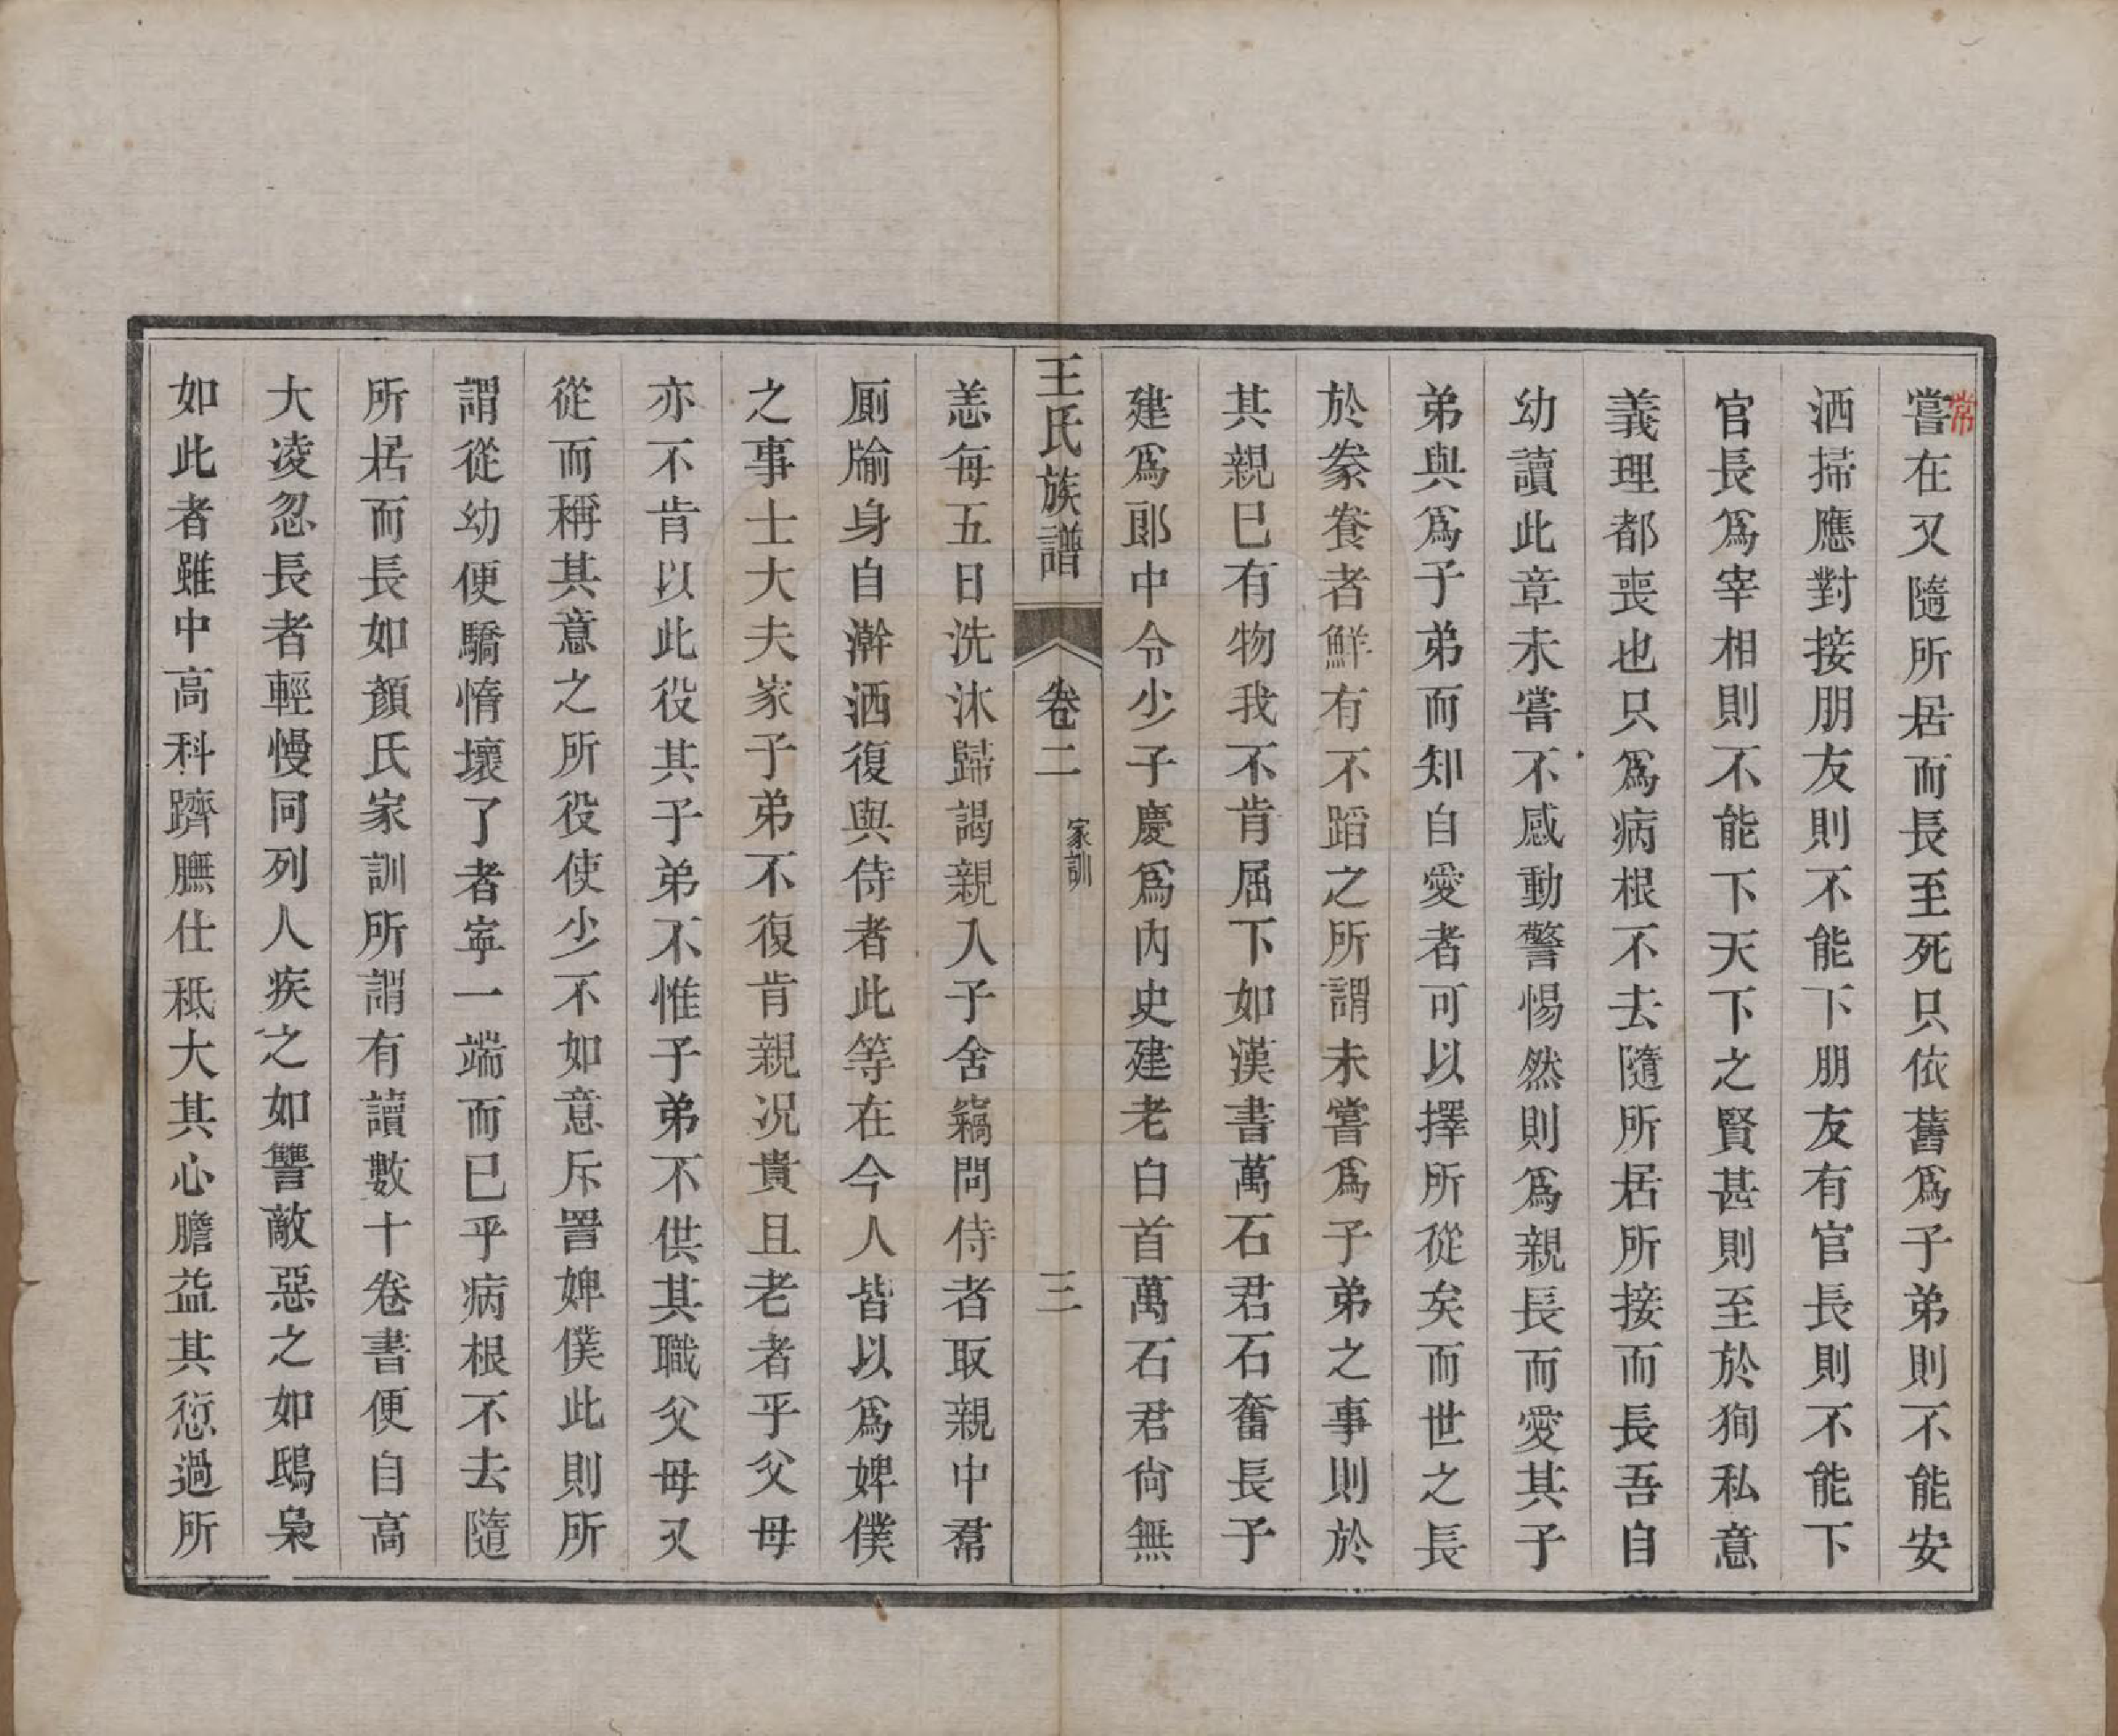 常
嘗在又隨所居而長至死只依舊爲子弟則不能安
洒掃應對接朋友則不能下朋友有官長則不能下
官長爲宰相則不能下天下之賢甚則至於狥私意
義理都喪也只爲病根不去隨所居所接而長吾自
幼讀此章未嘗不感動警惕然則爲親長而愛其子
弟與爲子弟而知自愛者可以擇所從矣而世之長
於豢養者鮮有不蹈之所謂未嘗爲子弟之事則於
其親已有物我不肯屈下如漢書萬石君石奮長子
建爲郎中令少子慶爲內史建老白首萬石君尙無
王氏族譜 卷二 家訓 三
恙每五日洗沐歸謁親入子舍竊問侍者取親中帬
厠牏身自澣洒復與侍者此等在今人皆以爲婢僕
之事士大夫家子弟不復肯親况貴且老者乎父母
亦不肯以此役其子弟不惟子弟不供其職父母又
從而稱其意之所役使少不如意斥詈婢僕此則所
謂從幼便驕惰壞了者寧一端而已乎病根不去隨
所居而長如顏氏家訓所謂有讀數十卷書便自高
大凌忽長者輕慢同列人疾之如讐敵惡之如鴟梟
如此者雖中高科躋膴仕秪大其心膽益其愆過所